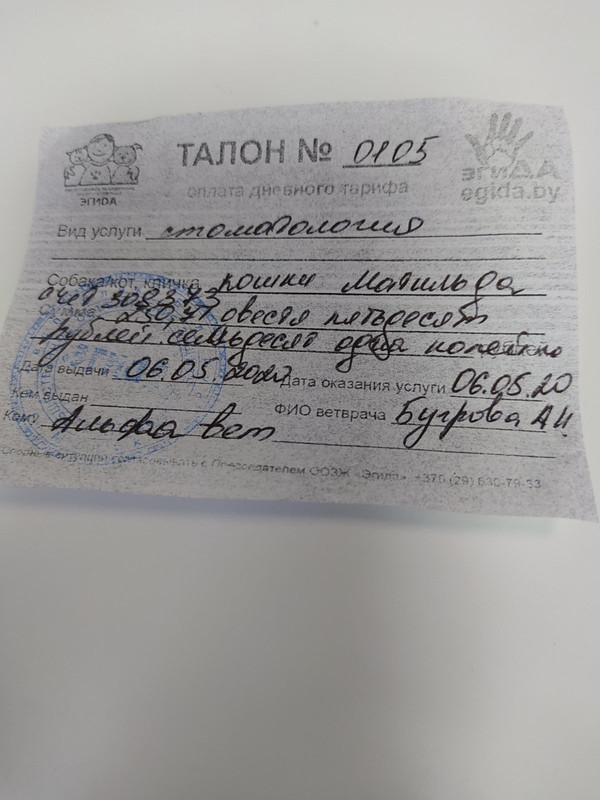 ЭГИДА
ТАЛОН № 0105
ЭГИДА
egida.by
оплата дневного тарифа
Вид услуги стоматология
Собака/кот, кличка кошка Матильда
счёт 308373
Сумма 250,71 двести пятьдесят
рублей семьдесят одна копейка
Дата выдачи 06.05.2020 Дата оказания услуги 06.05.20
Кем выдан
ФИО ветврача Бугрова А И
Кому Альфа вет
Спорные ситуации согласовывать с Председателем ООЗЖ «Эгида» +375 (29) 630-79-33